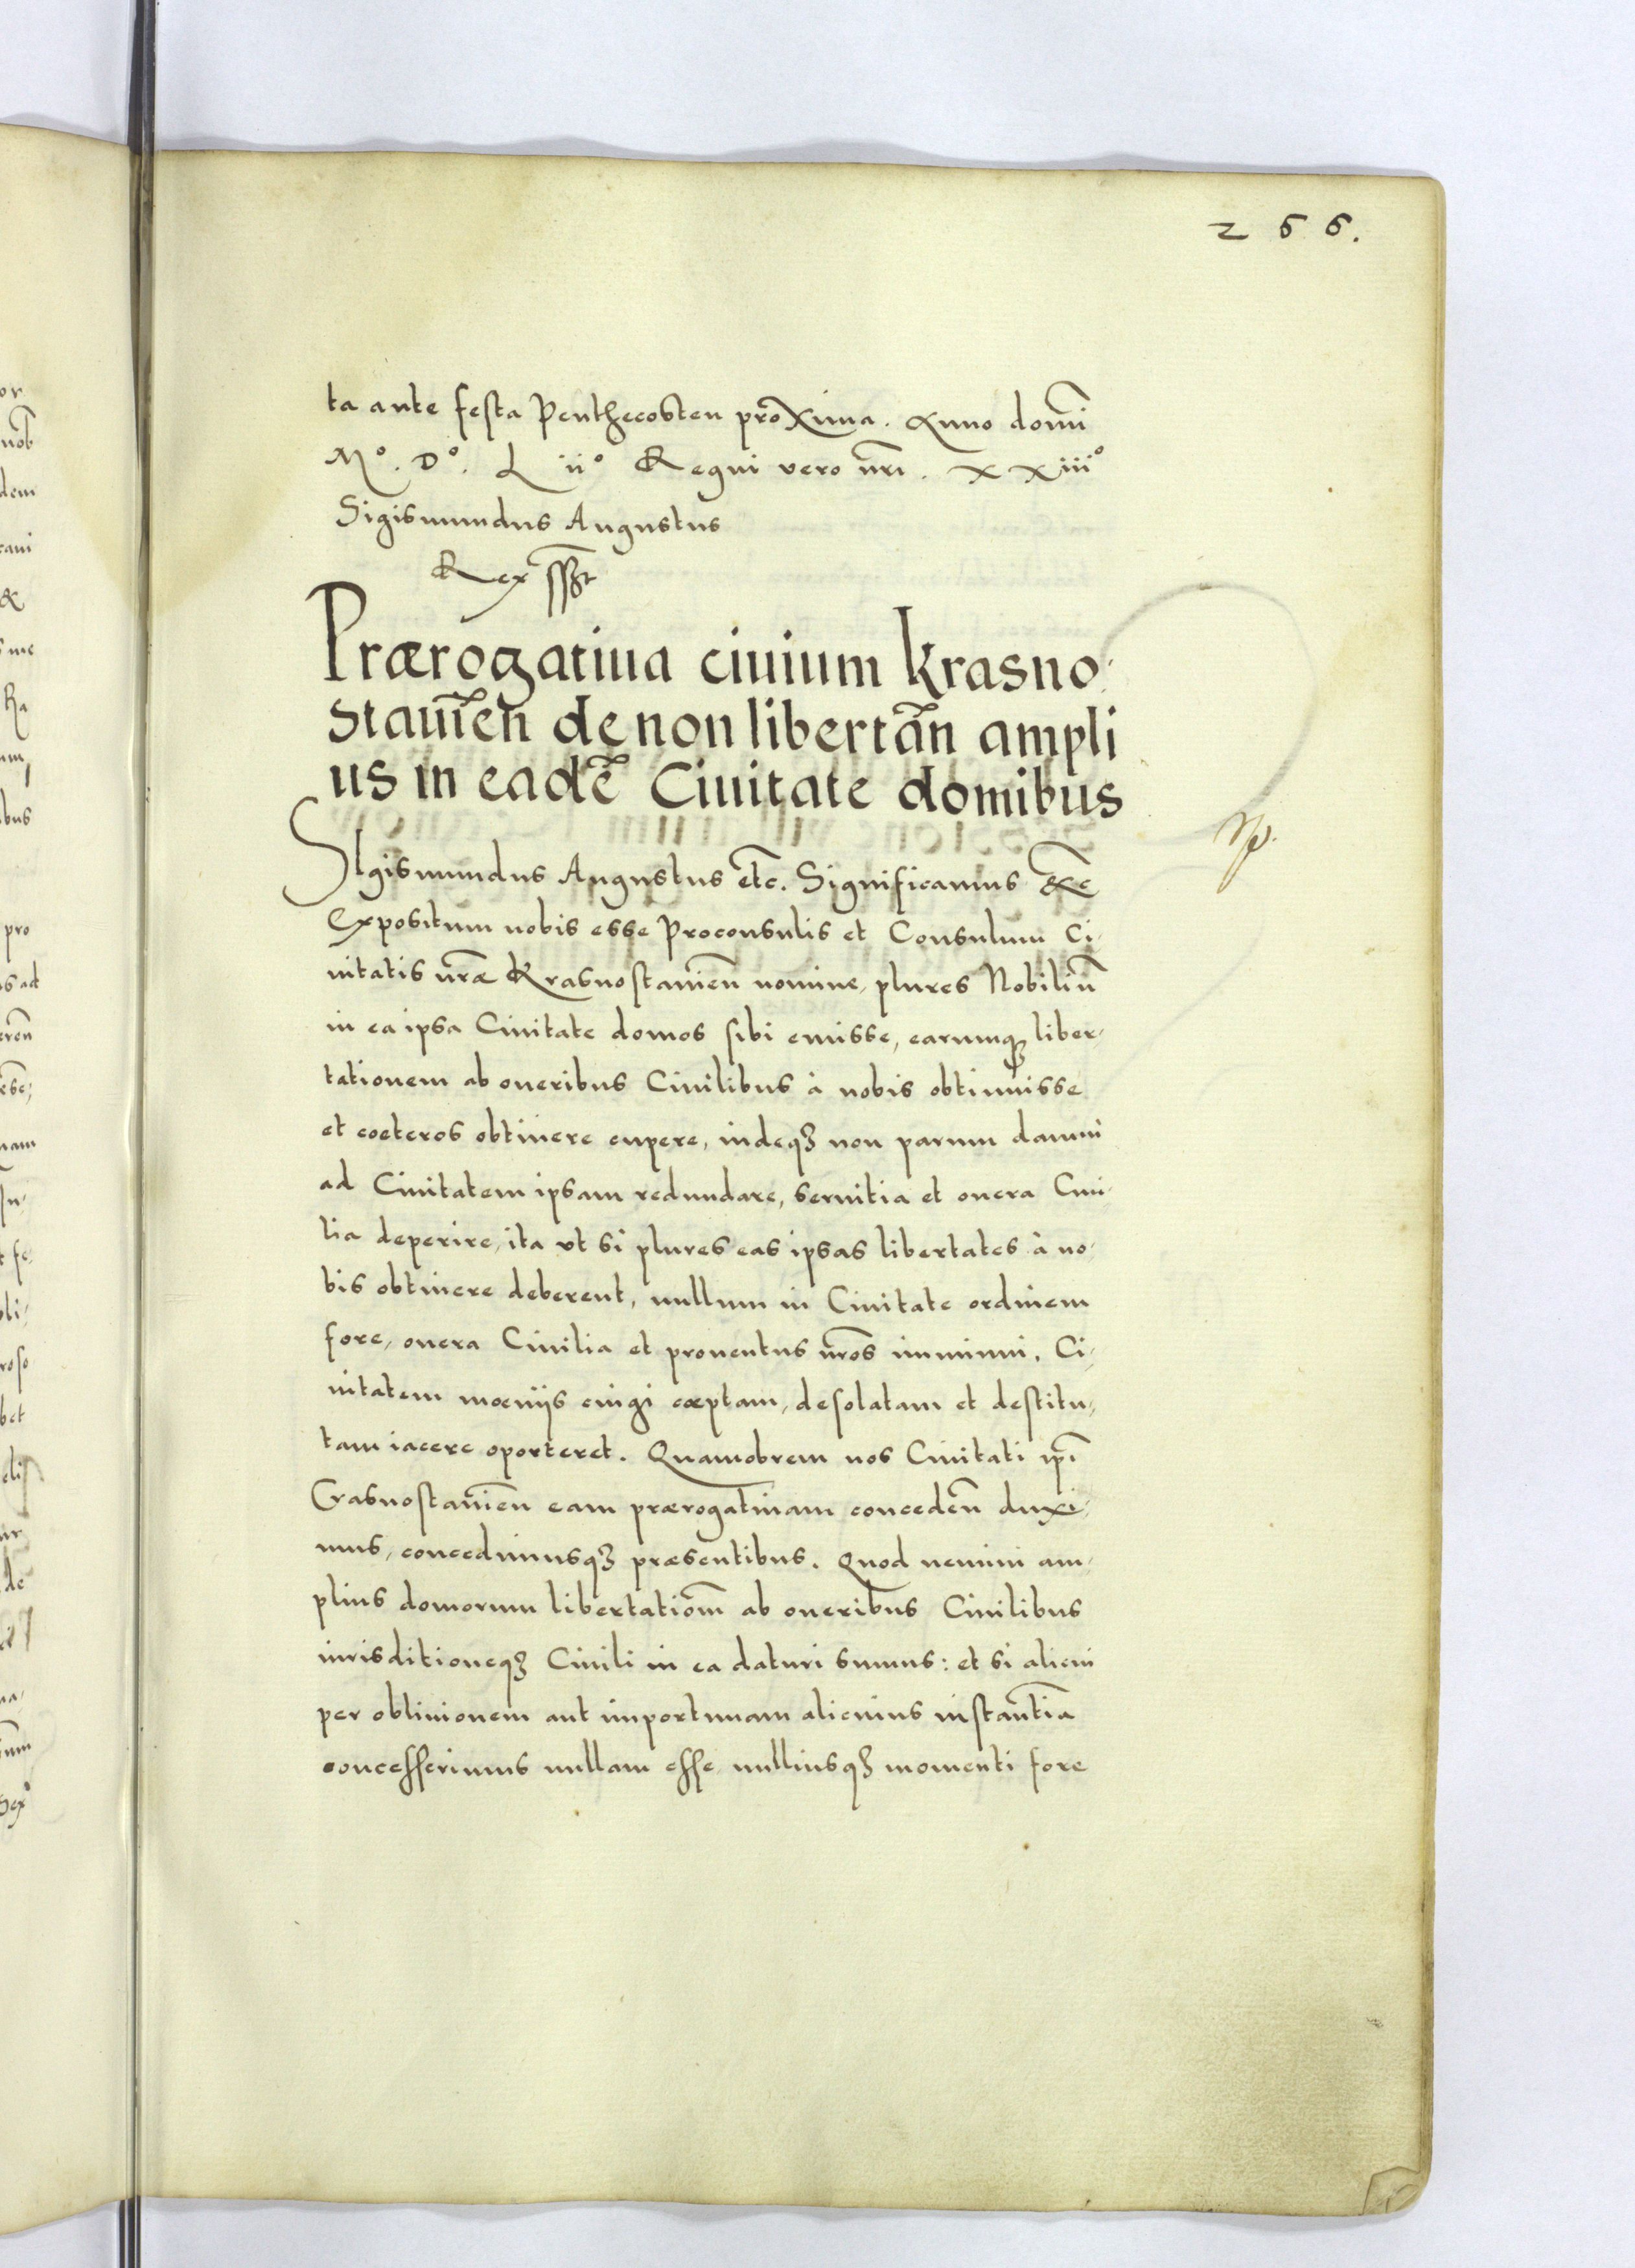 266.
ta ante festa Penthecosten proxima. Anno domi
M°. D°. L ii° Regni vero nri. XXiii°
Sigismundus Augustus
Rex sst
Prærogatiua ciuium Krasno
stauien de non libertan ampli
us in eadē Ciuitate domibus
SIgismundus Augustus etc. Significamus &c
Expositum nobis esse Proconsulis et Consulum Ci-
uitatis nræ Krasnostauien nomine, plures Nobiliū
in ea ipsa Ciuitate domos sibi emisse, earumq3 liber-
tationem ab oneribus Ciuilibus à nobis obtinuisse
et coeteros obtinere cupere, indeq3 non parum damni
ad Ciuitatem ipsam redundare, seruitia et onera Ciui-
lia deperire, ita vt si plures eas ipsas libertates à no-
bis obtinere deberent, nullum in Ciuitate ordinem
fore, onera Ciuilia et prouentus nros imminui, Ci-
uitatem mœnijs cingi cæptam, desolatam et destitu-
tam iacere oporteret. Quamobrem nos Ciuitati ipi
Crasnostauien eam prærogatiuam conceden duxi-
mus, concedimusq3 præsentibus. Quod nemini am-
plius domorum libertatiom ab oneribus Ciuilibus
iurisditioneq3 Ciuili in ea daturi sumus: et si alicui
per obliuionem aut importunam alicuius instantia
concesserimus nullam esse nulliusq3 momenti fore